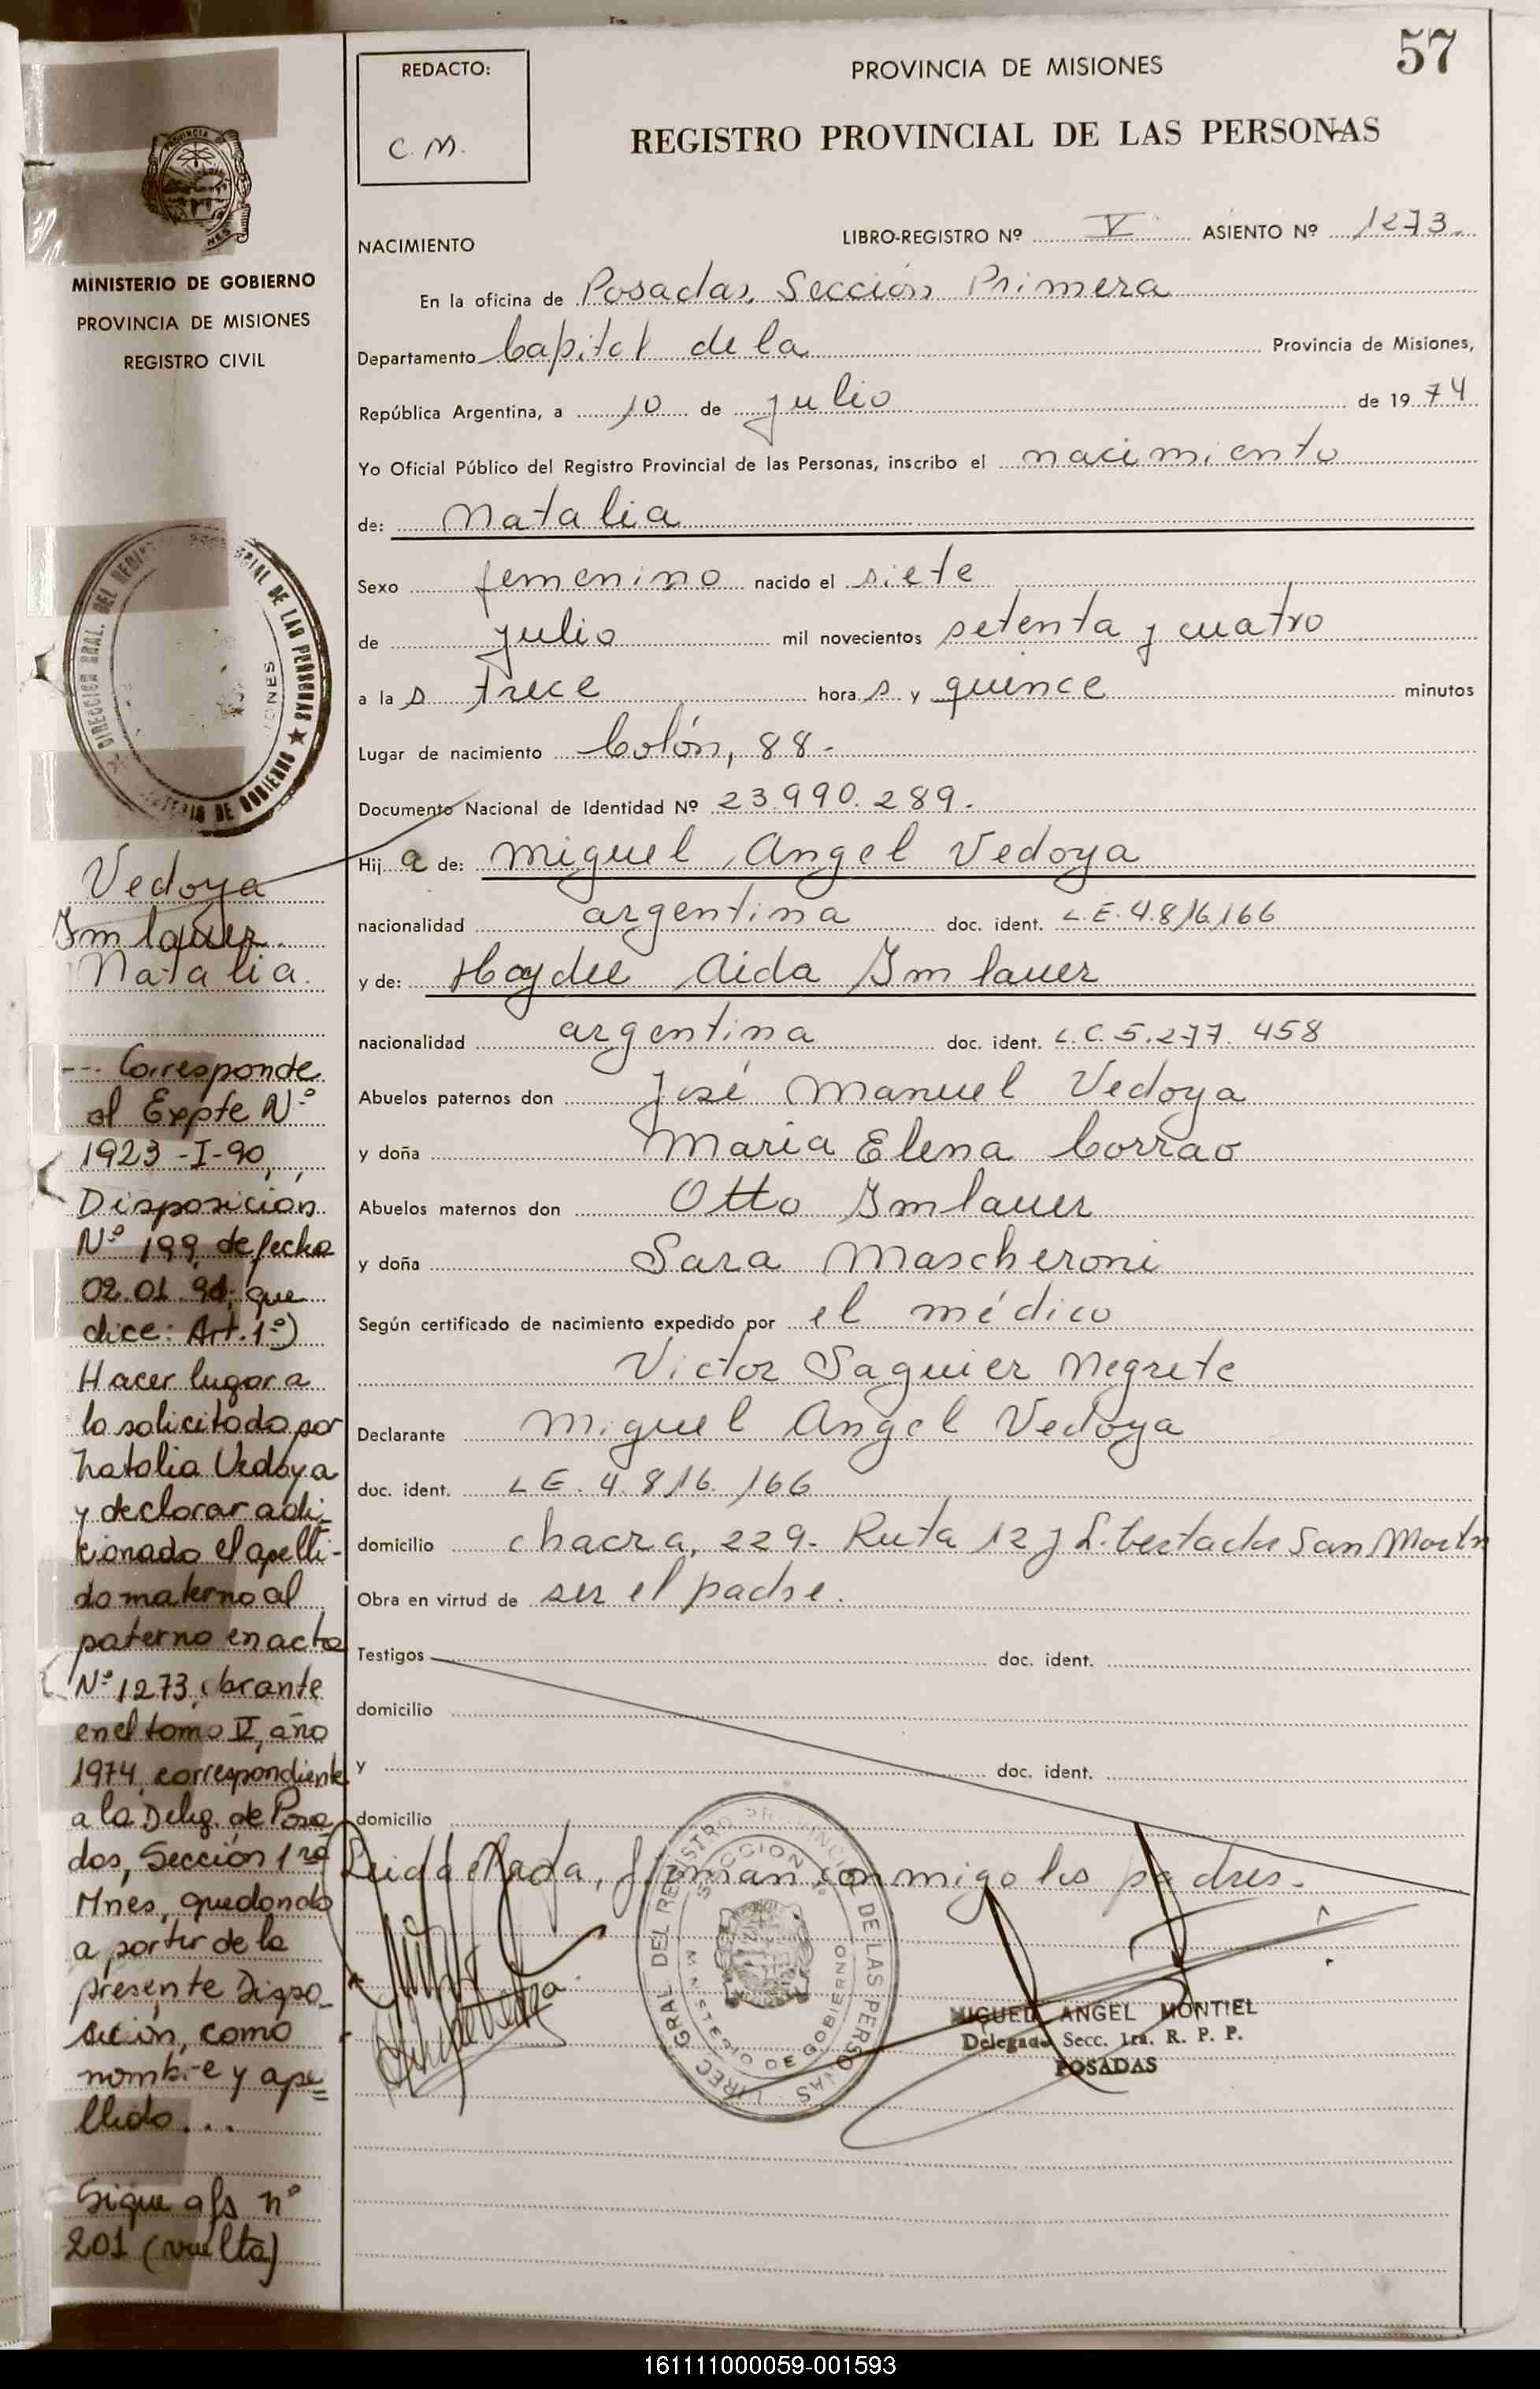 57
REDACTO:
C. M.
PROVINCIA DE MISIONES
REGISTRO PROVINCIAL DE LAS PERSONAS
NACIMIENTO
LIBRO-REGISTRO Nº V ASIENTO Nº 1273.
En la oficina de Posadas, Sección Primera
Departamento Capital de la Provincia de Misiones,
República Argentina, a 10 de julio de 1974
Yo Oficial Público del Registro Provincial de las Personas, inscribo el nacimiento
de: Natalia
Sexo femenino nacido el siete
de julio mil novecientos setenta y cuatro
a la s trece hora s y quince minutos
Lugar de nacimiento Colón, 88-
Documento Nacional de Identidad Nº 23.990.289.
Hij a de: Miguel Angel Vedoya
nacionalidad argentina doc. ident. L.E. 4.816.166
y de: Haydee Aida Imlauer
nacionalidad argentina doc. ident. L.C. 5.277.458
Abuelos paternos don José Manuel Vedoya
y doña Maria Elena Corrao
Abuelos maternos don Otto Imlauer
y doña Sara Mascheroni
Según certificado de nacimiento expedido por el médico
Victor Saguier Negrete
Declarante Miguel Angel Vedoya
doc. ident. L E. 4.816.166
domicilio chacra, 229- Ruta 12 y Libertador San Martín
Obra en virtud de ser el padre.
Testigos doc. ident.
domicilio
y doc. ident.
domicilio
firman conmigo los padres.
MIGUEL ANGEL MONTIEL
Delegado Secc. 1ra. R. P. P.
POSADAS
MINISTERIO DE GOBIERNO
PROVINCIA DE MISIONES
REGISTRO CIVIL
Vedoya
Imlauer
Natalia.
--- Corresponde
al Expte Nº
1923-I-90,
Disposición
Nº 199, de fecha
02.01.91, que
dice: Art. 1º)
Hacer lugar a
lo solicitado por
Natalia Vedoya
y declarar adi-
cionado el apelli-
do materno al
paterno en acta
Nº 1273, obrante
en el tomo V, año
1974, correspondiente
a la Deleg. de Posa
das, Sección 1ra
Mnes, quedando
a partir de la
presente Dispo-
sición, como
nombre y ape=
llido...
Sigue a fs nº
201 (vuelta)
161111000059-001593